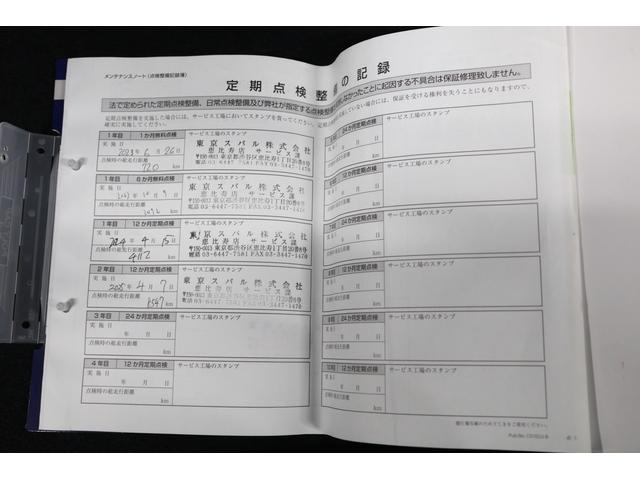 メンテナンスノート(点検整備記録簿)
定期点検整備の記録
法で定められた定期点検整備、日常点検整備及び弊社が指定する点検整備
しなかったことに起因する不具合は保証修理致しません。
定期点検整備を実施した場合は、サービス工場においてスタンプを貰ってください。
確実に実施してください。
ていない場合には、保証を受ける権利を失うことにもなりますので、
1年目 1か月無料点検 サービス工場のスタンプ
実施日
2023年6月26日
点検時の総走行距離
720 km
東京スバル株式会社
恵比寿店 サービス課
〒150-0013 東京都渋谷区恵比寿1丁目20番8号
電話 03-6447-7581 FAX 03-3447-1470
1年目 6か月無料点検 サービス工場のスタンプ
実施日
年 月 日
点検時の総走行距離
km
東京スバル株式会社
恵比寿店 サービス課
〒150-0013 東京都渋谷区恵比寿1丁目20番8号
電話 03-6447-7581 FAX 03-3447-1470
1年目 12か月定期点検 サービス工場のスタンプ
実施日
2024年4月15日
点検時の総走行距離
4112 km
東京スバル株式会社
恵比寿店 サービス課
〒150-0013 東京都渋谷区恵比寿1丁目20番8号
電話 03-6447-7581 FAX 03-3447-1470
2年目 12か月定期点検 サービス工場のスタンプ
実施日
2025年4月7日
点検時の総走行距離
km
東京スバル株式会社
恵比寿店 サービス課
〒150-0013 東京都渋谷区恵比寿1丁目20番8号
電話 03-6447-7581 FAX 03-3447-1470
3年目 24か月定期点検 サービス工場のスタンプ
実施日
年 月 日
点検時の総走行距離
km
4年目 12か月定期点検 サービス工場のスタンプ
実施日
年 月 日
点検時の総走行距離
km
24か月定期点検 サービス工場のスタンプ
年 月 日
点検時の総走行距離
km
12か月定期点検 サービス工場のスタンプ
年 月 日
点検時の総走行距離
km
24か月定期点検 サービス工場のスタンプ
年 月 日
点検時の総走行距離
km
12か月定期点検 サービス工場のスタンプ
年 月 日
点検時の総走行距離
km
24か月定期点検 サービス工場のスタンプ
年 月 日
点検時の総走行距離
km
12か月定期点検 サービス工場のスタンプ
年 月 日
点検時の総走行距離
km